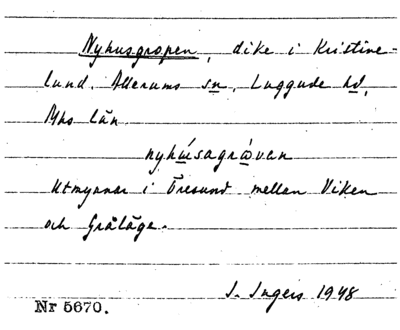 Nyhusgropen, dike i Kristine-
lund, Allerums sn, Luggude hd,
Mhs län
nyhúsagrǻvan
Utmynnar i Öresund mellan Viken
och Gråläge.
I. Ingers 1948
Nr 5670.